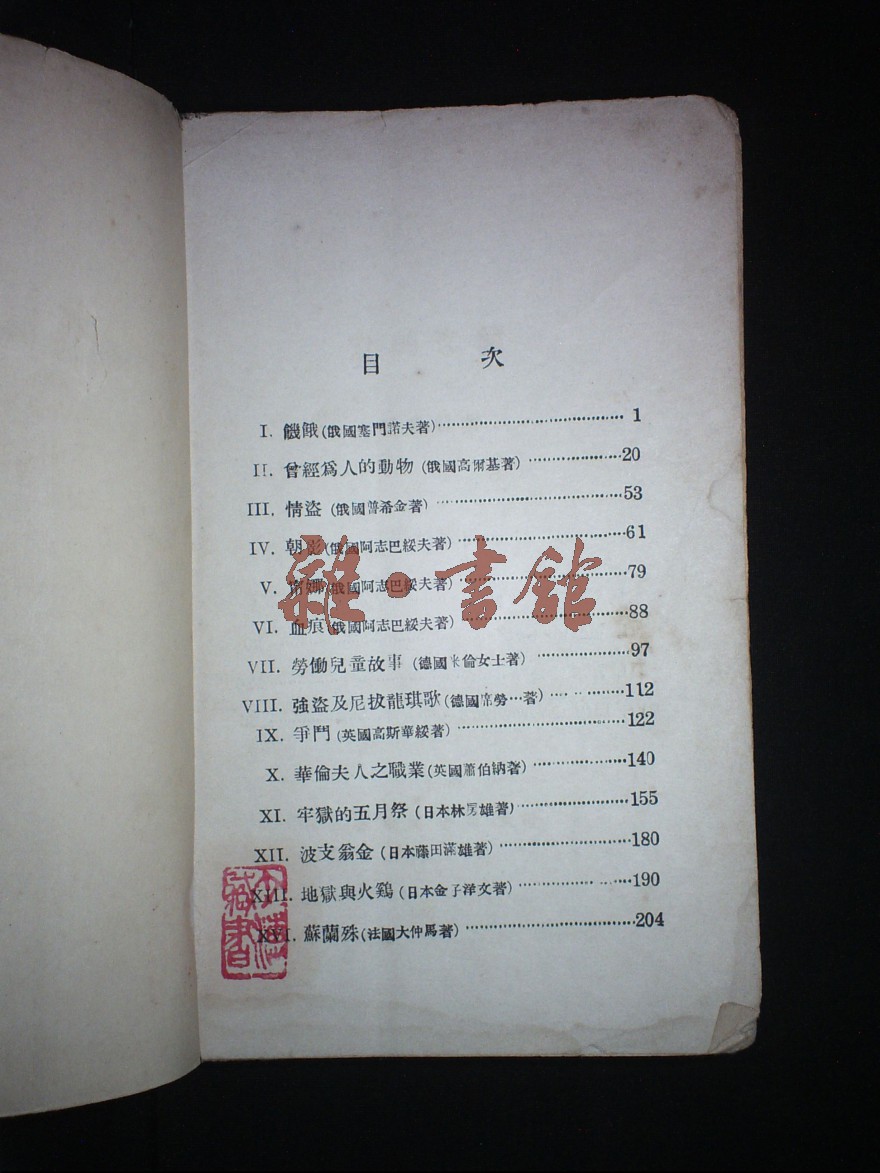 目 次
I. 饑餓(俄國塞門諾夫著)……1
II. 曾經爲人的動物(俄國高爾基著)……20
III. 情盜(俄國普希金著)……53
IV. 朝影(俄國阿志巴綏夫著)……61
V. 甯娜(俄國阿志巴綏夫著)……79
VI. 血痕(俄國阿志巴綏夫著)……88
VII. 勞働兒童故事(德國米倫女士著)……97
VIII. 強盜及尼拔龍琪歌(德國席勞…著)……112
IX. 爭鬥(英國高斯華綏著)……122
X. 華倫夫人之職業(英國蕭伯納著)……140
XI. 牢獄的五月祭(日本林房雄著)……155
XII. 波支翁金(日本藤田滿雄著)……180
XIII. 地獄與火鷄(日本金子洋文著)……190
XVI. 蘇蘭殊(法國大仲馬著)……204
雜·書館
藏書